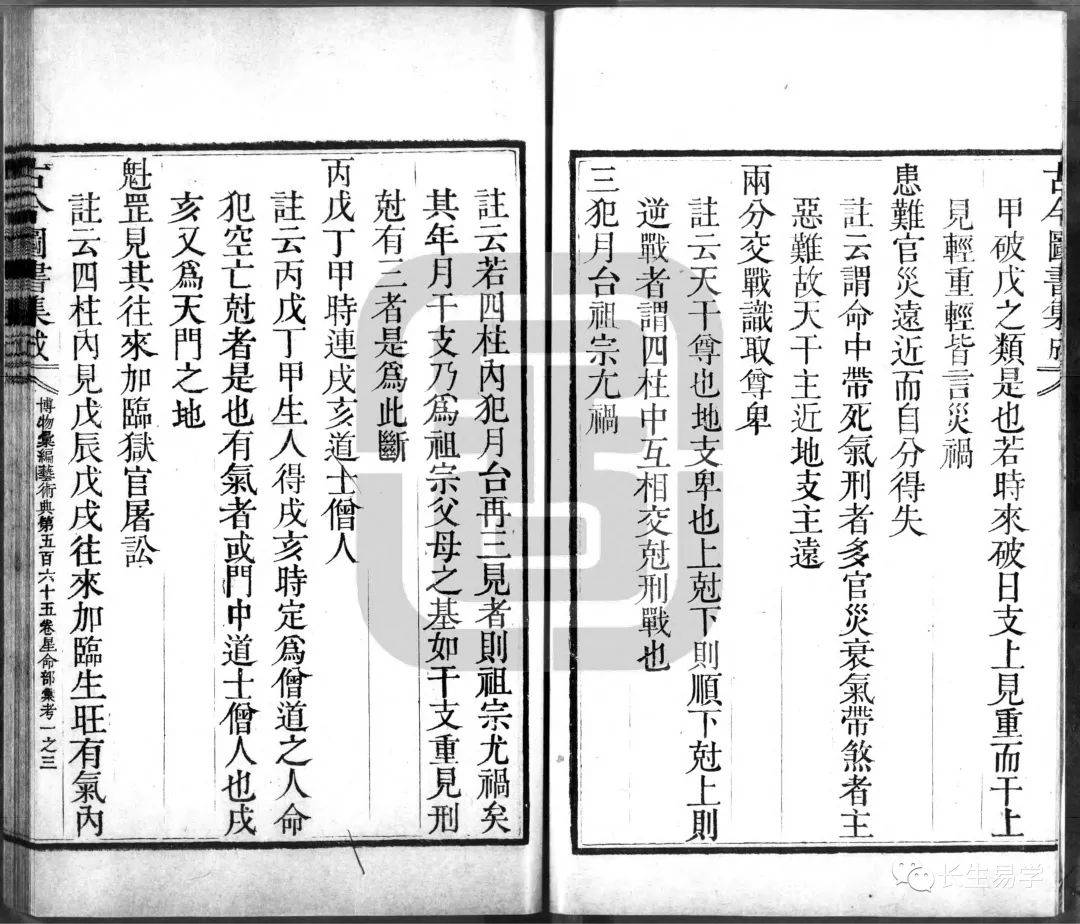 古今圖書集成
甲破戊之類是也若時來破日支上見重而干上
見輕重輕皆言災禍
患難官災遠近而自分得失
註云謂命中帶死氣刑者多官災衰氣帶煞者主
惡難故天干主近地支主遠
兩分交戰識取尊卑
註云天干尊也地支卑也上尅下則順下尅上則
逆戰者謂四柱中互相交尅刑戰也
三犯月台祖宗尤禍
註云若四柱內犯月台再三見者則祖宗尤禍矣
其年月干支乃爲祖宗父母之基如干支重見刑
尅有三者是爲此斷
丙戊丁甲時連戌亥道士僧人
註云丙戊丁甲生人得戌亥時定爲僧道之人命
犯空亡尅者是也有氣者或門中道士僧人也戌
亥又爲天門之地
魁罡見其往來加臨獄官屠訟
註云四柱內見戊辰戊戌往來加臨生旺有氣內
古今圖書集成
博物彙編藝術典第五百六十五卷星命部彙考一之三
长生易学